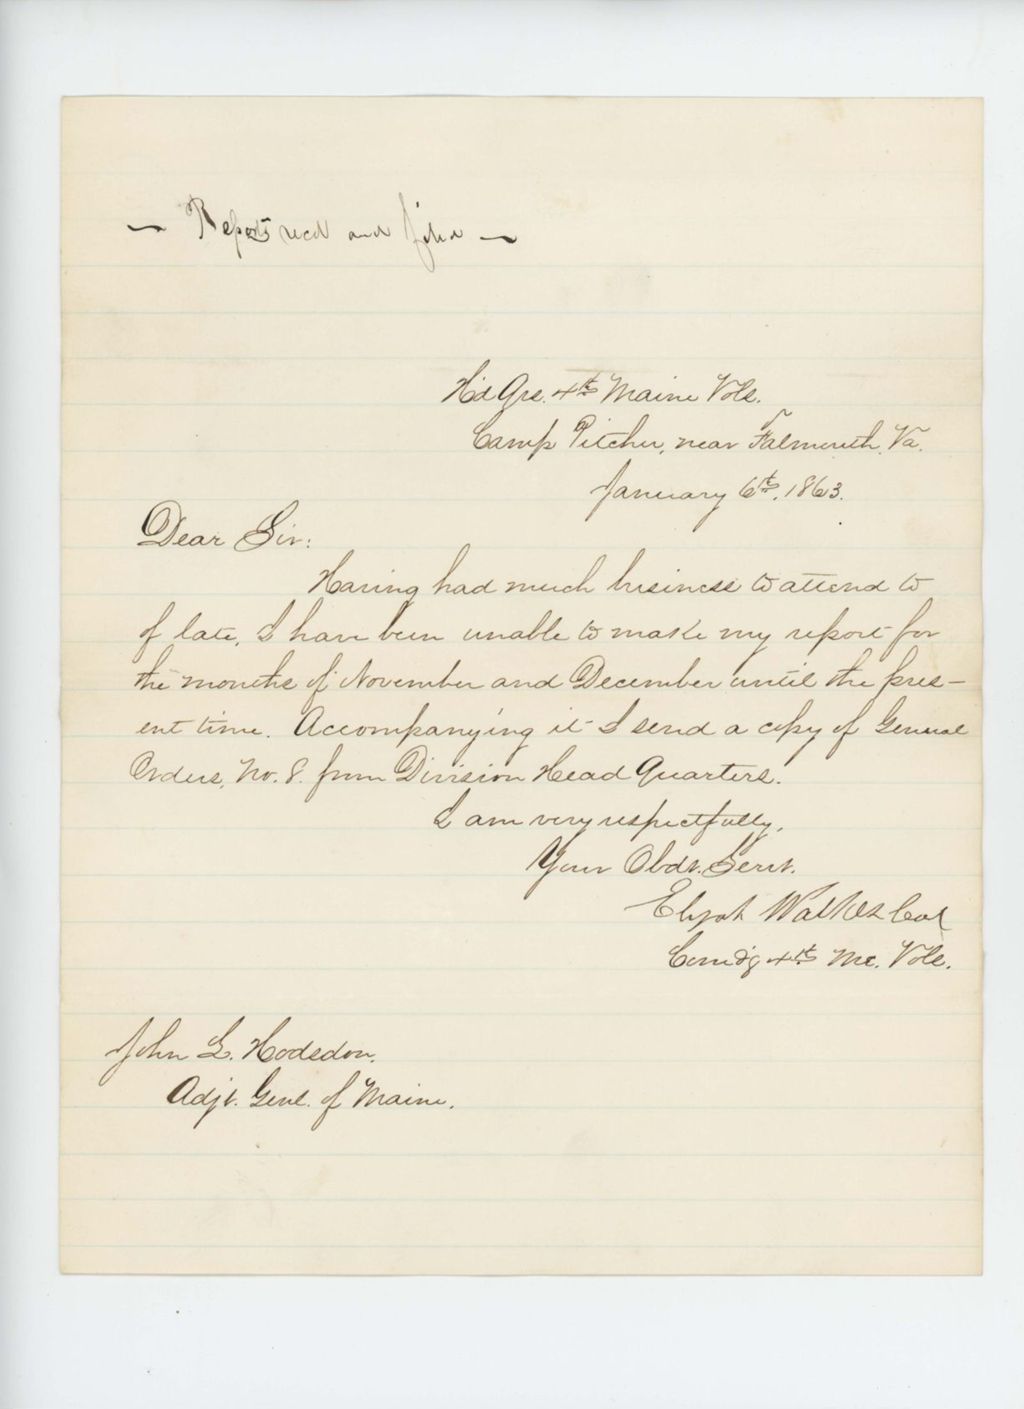 ~ Reports recd and filed ~
Hd Qrs. 4th Maine Vols.
Camp Pitcher, near Falmouth, Va.
January 6th, 1863.
Dear Sir:
Having had much business to attend to
of late, I have been unable to make my report for
the months of November and December until the pres-
ent time. Accompanying it I send a copy of General
Orders, No. 8. from Division Head Quarters.
I am very respectfully,
Your Obdt. Servt.
Elijah Walker Col
Comd'g 4th Me. Vols.
John L. Hodsdon.
Adjt. Genl. of Maine.